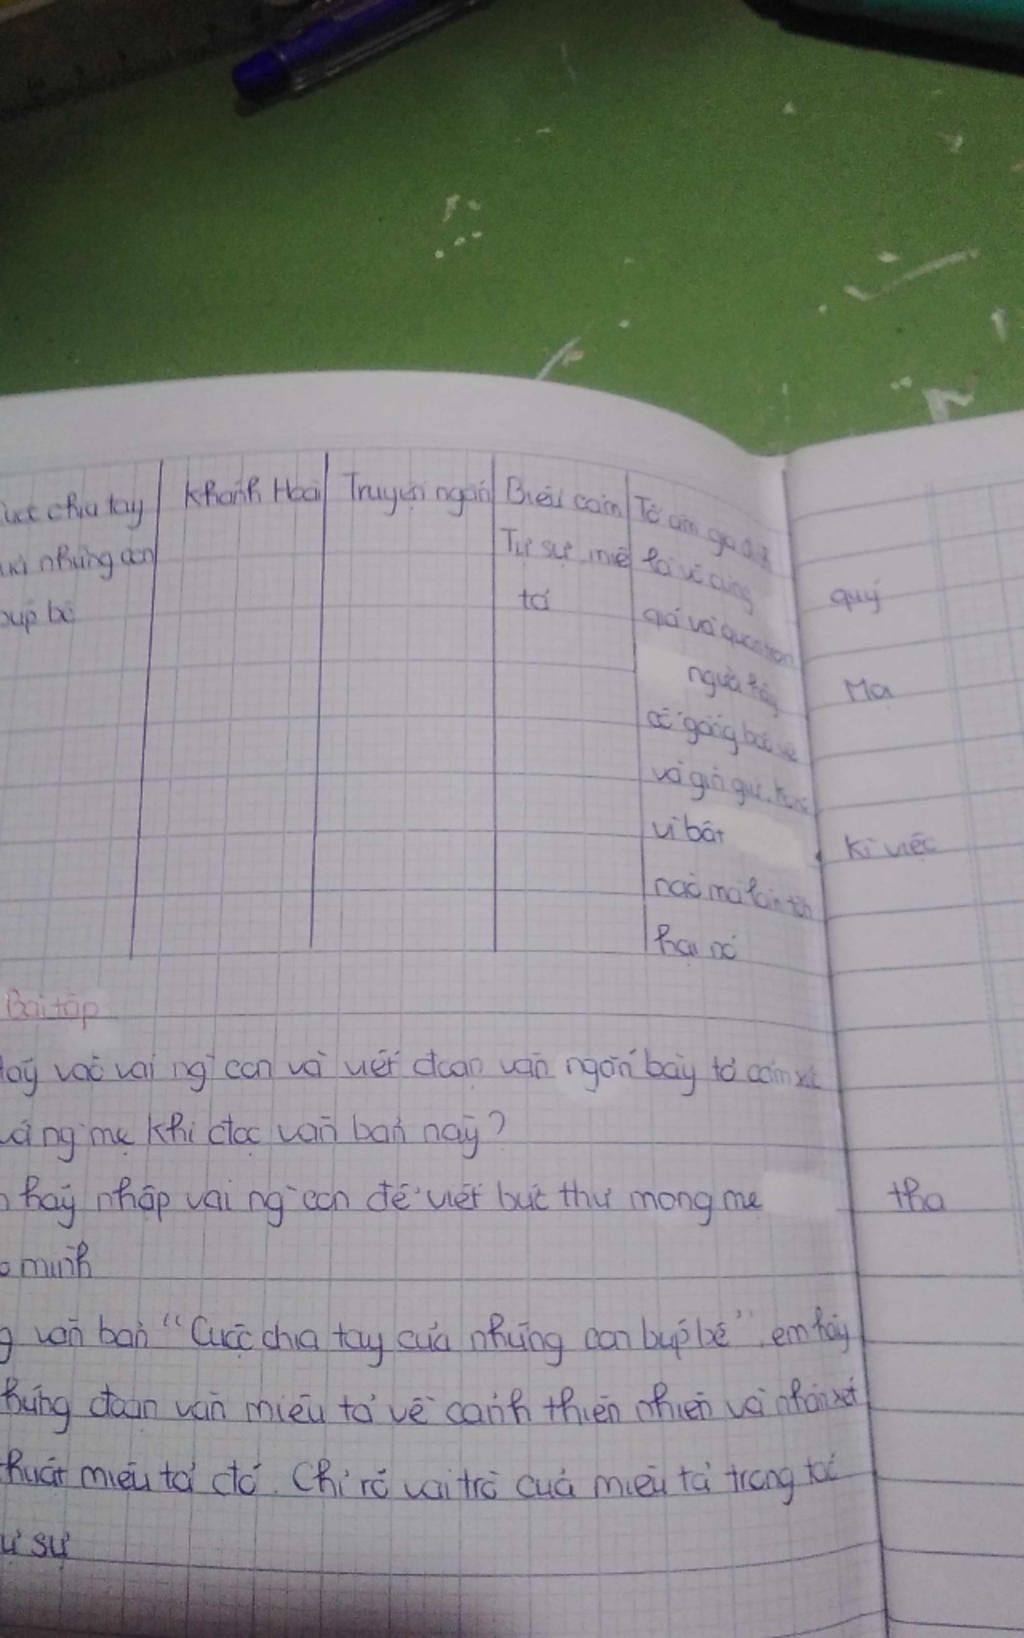 chia tay Khánh Hoài Truyện ngắn Biểu cảm Tổ ấm gia đình
những con Tự sự miê là vô cùng
búp bê tả quý
giá và quan tron
người hãy Mọi
cố gắng bảo vệ
và gìn giữ
vì bất kì việc
nào mà làm tổn
hại nó
Bài tập
vào vai ng` con và viết đoạn văn ngắn bày tỏ cảm xúc
mẹ khi đọc văn bản này?
hãy nhập vai ng` con để viết bức thư mong mẹ tha
mình
văn bản "Cuộc chia tay của những con búp bê", em hãy
đoạn văn miêu tả về cảnh thiên nhiên và nhận xét
thuật miêu tả đó. Chỉ rõ vai trò của miêu tả trong
sự